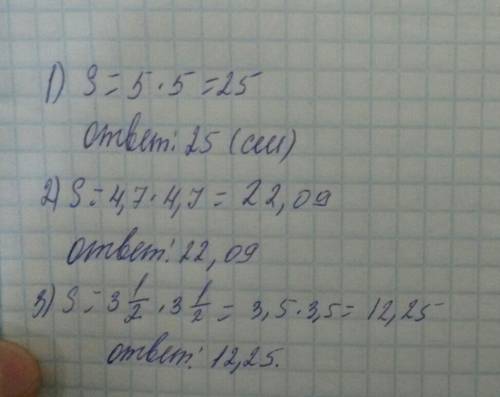 1) S = 5 · 5 = 25
ответ: 25 (см)
2) S = 4,7 · 4,7 = 22,09
ответ: 22,09
3) S = 3 1/2 · 3 1/2 = 3,5 · 3,5 = 12,25
ответ: 12,25.